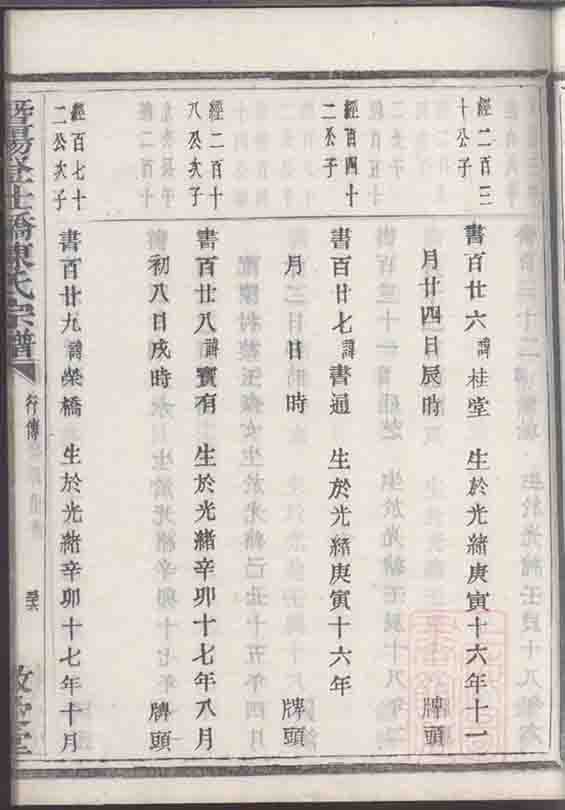 經二百三
十公子
書百廿六諱桂堂 生於光緒庚寅十六年十一
月廿四日辰時 牌頭
經百四十
二公子
書百廿七諱書通 生於光緒庚寅十六年
月 日 時 牌頭
經二百十
八公次子
書百廿八諱寶有 生於光緒辛卯十七年八月
初八日戌時 牌頭
經百七十
二公次子
書百廿九諱榮橋 生於光緒辛卯十七年十月
陳氏宗譜
行傳